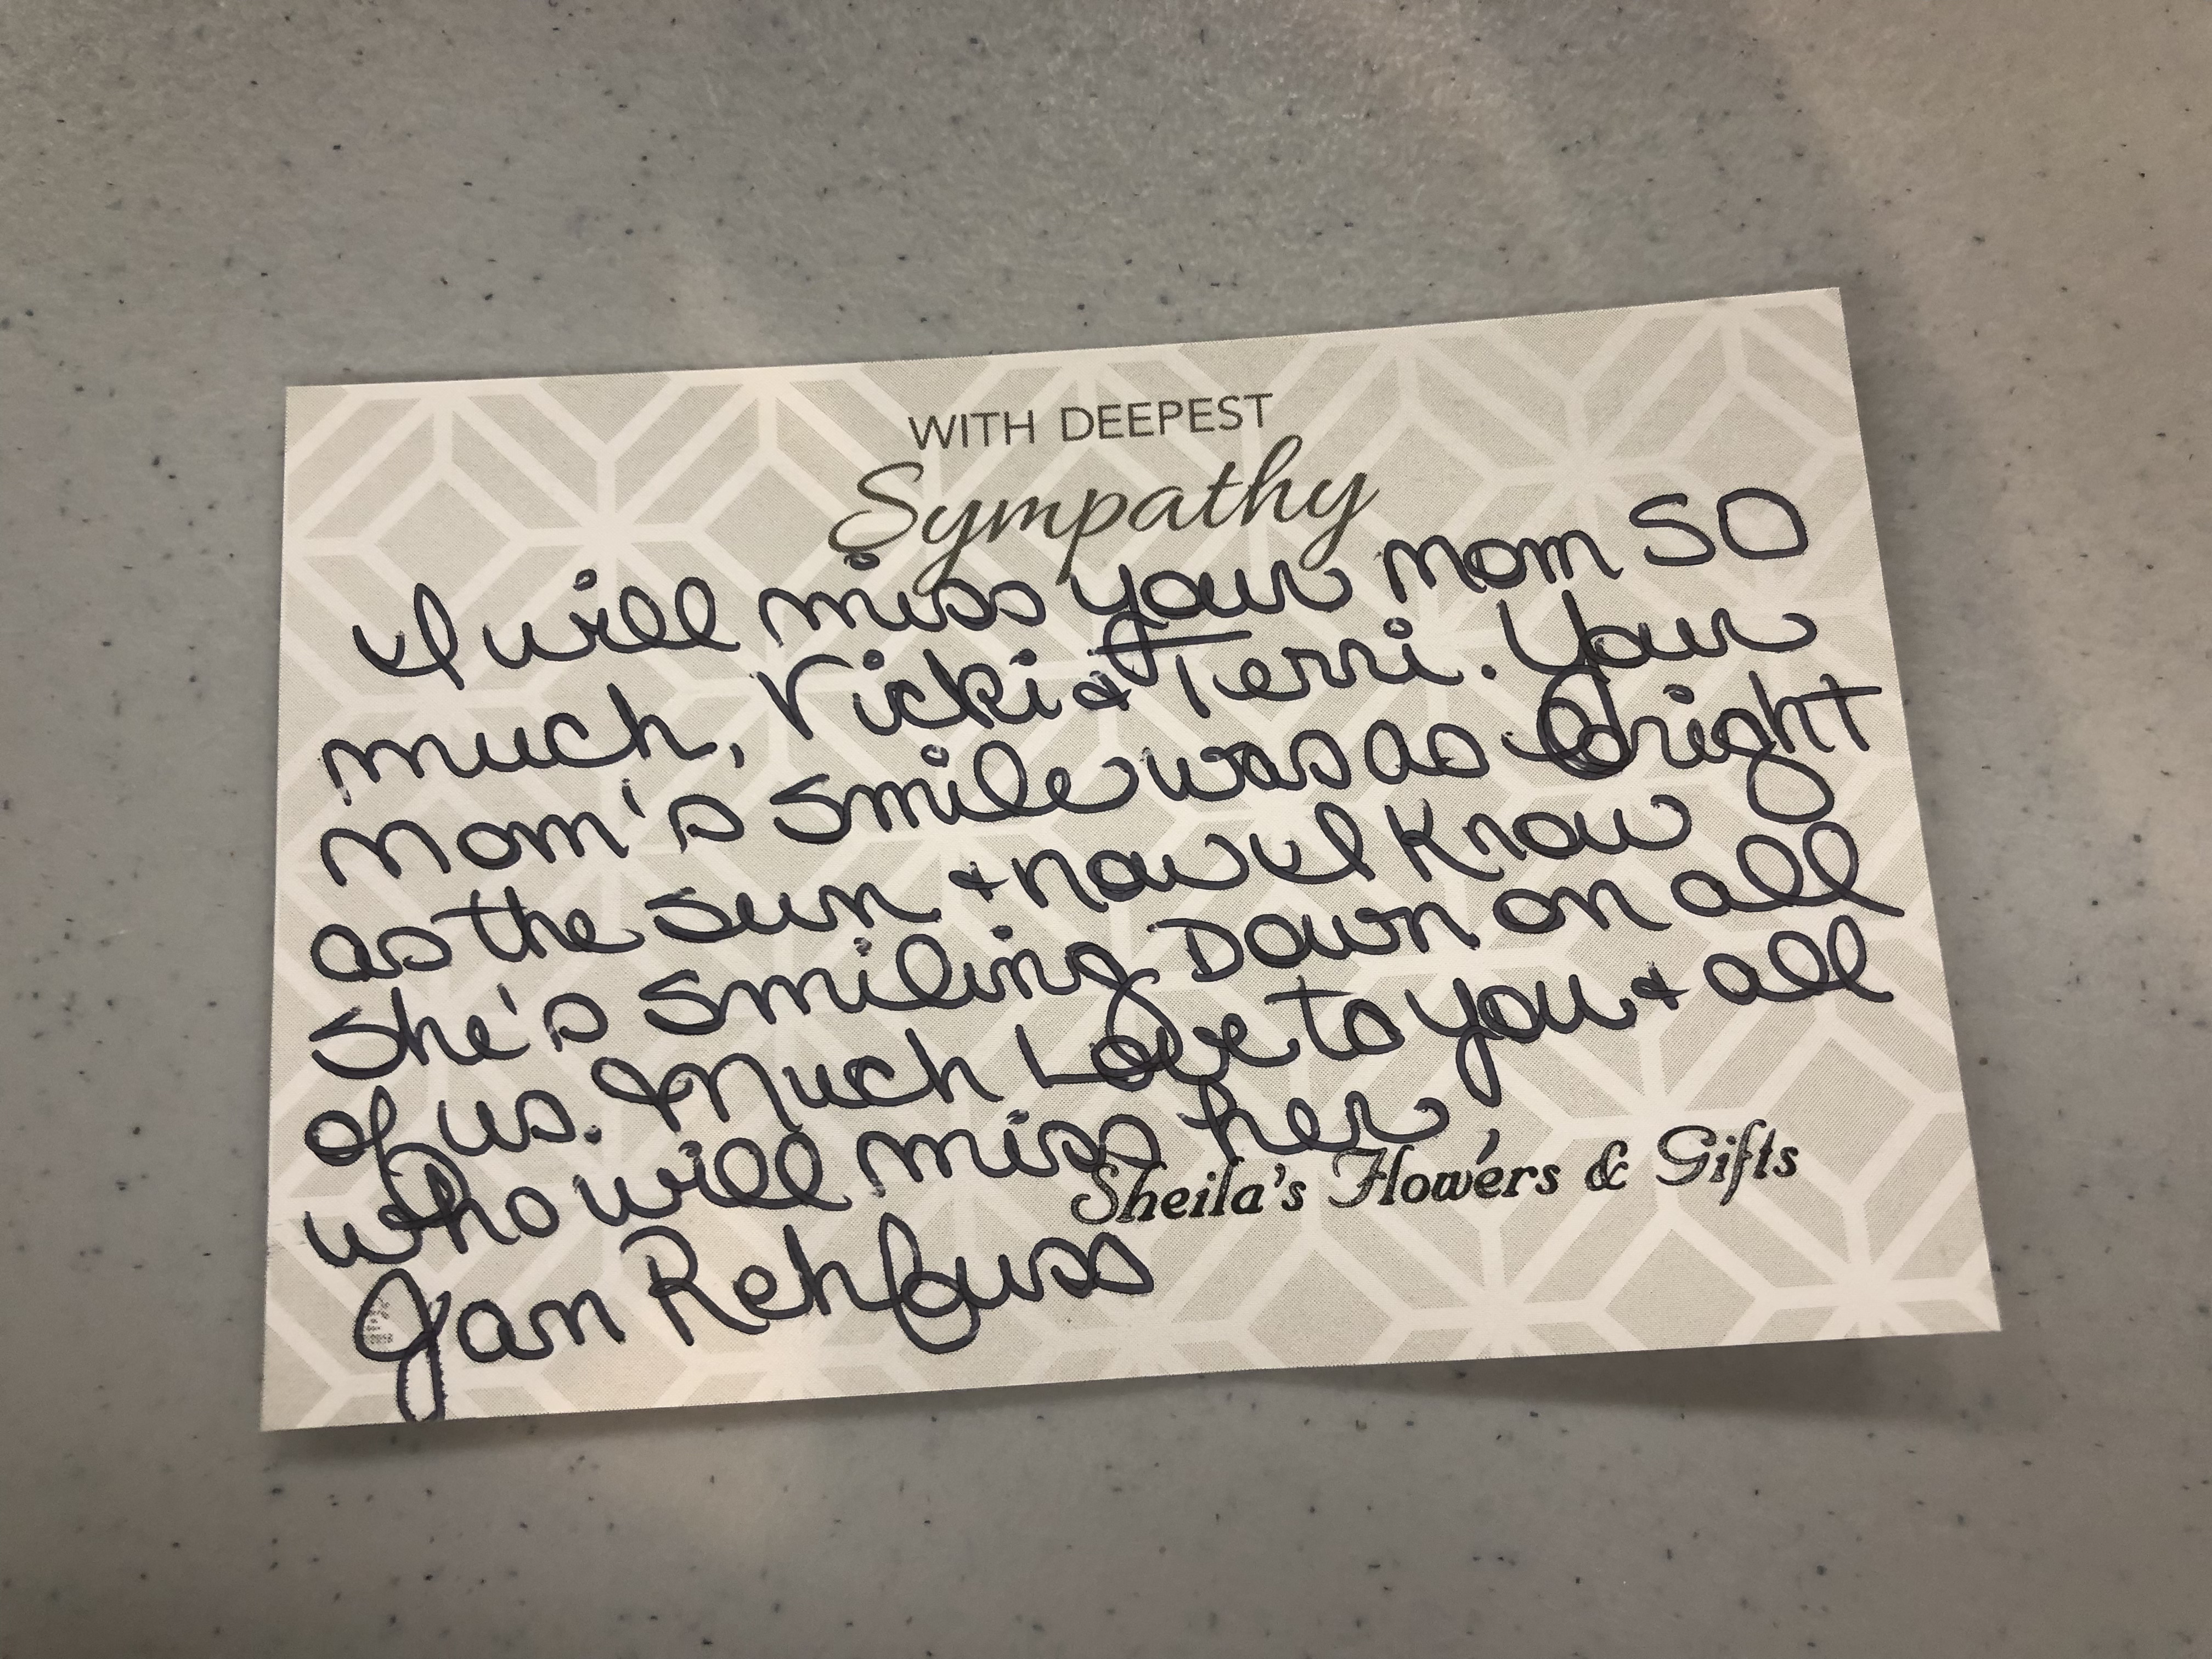 WITH DEEPEST
Sympathy
I will miss your mom SO
much, Vicki & Terri. Your
Mom's smile was as bright
as the sun & now I know
She's smiling Down on all
of us. Much Love to you & all
who will miss her,
Sheila's Flowers & Gifts
Jan Rehfuss